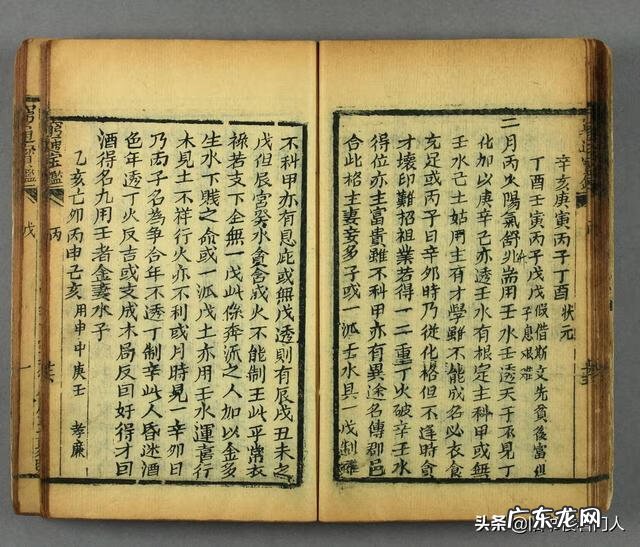 辛亥庚寅丙子丁酉 狀元
丁酉壬寅丙子戊戌 假借斯文先貧後富但子息艱難
二月丙火陽氣舒升用壬水壬透天干不見丁
化加以庚辛己亦透壬水有根定主科甲或無
壬水己土姑用主有才學雖不能成名必衣食
充足或丙子日辛卯時乃從化格但不逢時貪
才壞印難招祖業若得一二重丁火破辛壬水
得位亦主富貴雖不科甲亦有異途名傳郡邑
合此格主妻妾多子或一派壬水具一戊制
不科甲亦有恩此或無戊透則有辰戌丑未之
戊但辰宮癸水貪合成火不能制壬此乎常衣
祿若支下全無一戊此條奔流之人加以金多
生水下賤之命或一派戊土亦用壬水運喜行
木見土不祥行火亦不利或月時見一辛卯日
乃丙子名為爭合年不透丁制辛此人昏迷酒
色年透丁火反吉或支成木局反回好得才回
酒得名九用王者金妻水子
乙亥己卯丙申己亥 用申中庚壬 孝廉
窮通寶鑑
丙
窮通寶鑑
戊
一
头条
广东龙网